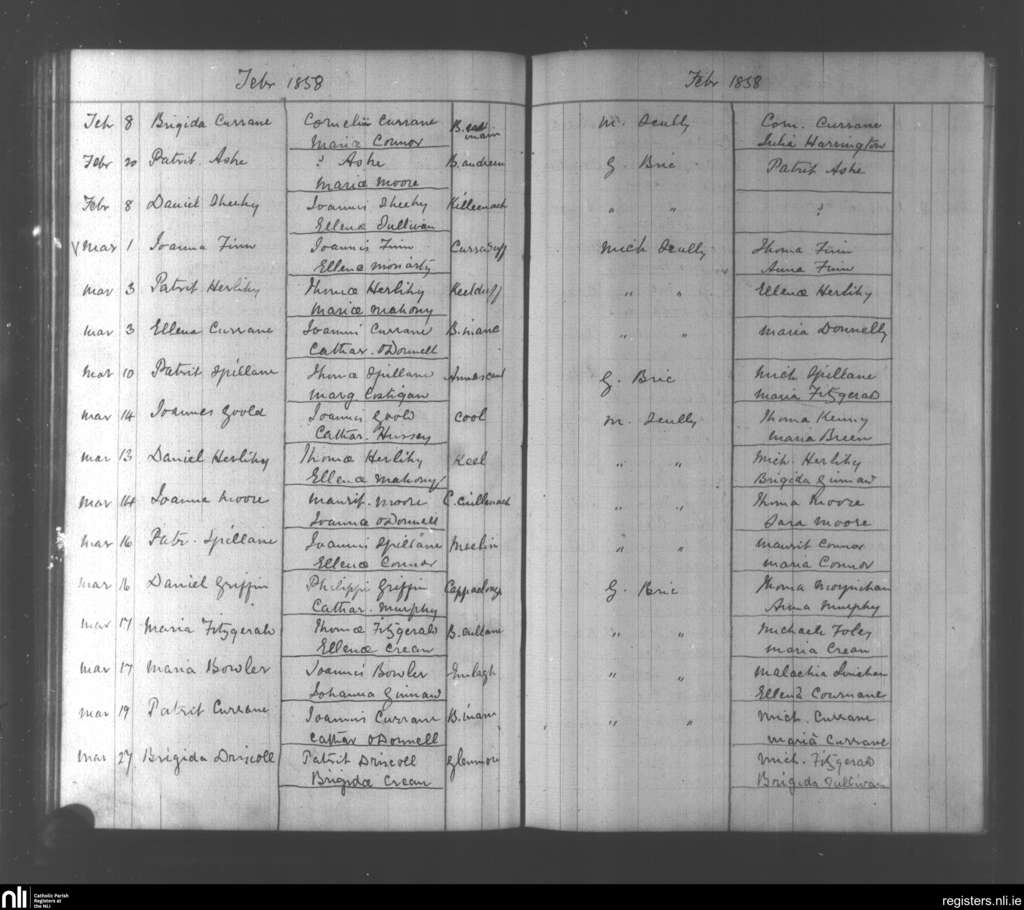 Febr 1858 Febr 1858
Feb 8 Brigida Currane Cornelii Currane M. Scully Corn. Currane
Maria Connor Julia Harrington
Febr 20 Patrit. Ashe ? Ashe B. andreen G Bric Patrit Ashe
Mariæ Moore
Febr 8 Daniel Sheehy Joannis Sheehy Killeenach " " ?
Ellenæ Sullivan
√ Mar 1 Joanna Finn Joannis Finn Curraduff Mich Scully Thoma Finn
Ellenæ Moriarty Anna Finn
Mar 3 Patrit Herlihy Thomæ Herlihy Keelduff " " Ellenæ Herlihy
Mariæ Mahony
Mar 3 Ellena Currane Joannis Currane B. inane " " Maria Donnelly
Cathar. O'Donnell
Mar 10 Patrit Spillane Thomæ Spillane G. Bric Mich Spillane
Marg Costigan Maria Fitzgerald
Mar 14 Joannes Goold Joannis Goold Cool M. Scully Thoma Kenny
Cathar. Hussey Maria Breen
Mar 13 Daniel Herlihy Thomæ Herlihy Keel " " Mich. Herlihy
Ellenæ Mahony Brigida Ginnaw
Mar 14 Joanna Moore Maurit. Moore C. cullenach " " Thoma Moore
Joannæ O'Donnell Sara Moore
Mar 16 Patr. Spillane Joannis Spillane Meelin " " Maurit Connor
Ellenæ Connor Maria Connor
Mar 16 Daniel Griffin Philippi Griffin Cappaclough G. Bric Thoma Moynihan
Cathar. Murphy Anna Murphy
Mar 17 Maria Fitzgerald Thomæ Fitzgerald B. cullane " " Michaele Foley
Ellenæ Crean Maria Crean
Mar 17 Maria Bowler Joannis Bowler Emlagh " " Malachia
Johanna Ginnaw Ellenæ Cournane
Mar 19 Patrit Currane Joannis Currane B. inane " " Mich. Currane
Cathar O'Donnell Maria Currane
Mar 27 Brigida Driscoll Patrit Driscoll Glenmore Mich. Fitzgerald
Brigidæ Crean Brigida Sullivan
nli Catholic Parish
Registers at
the NLI
registers.nli.ie